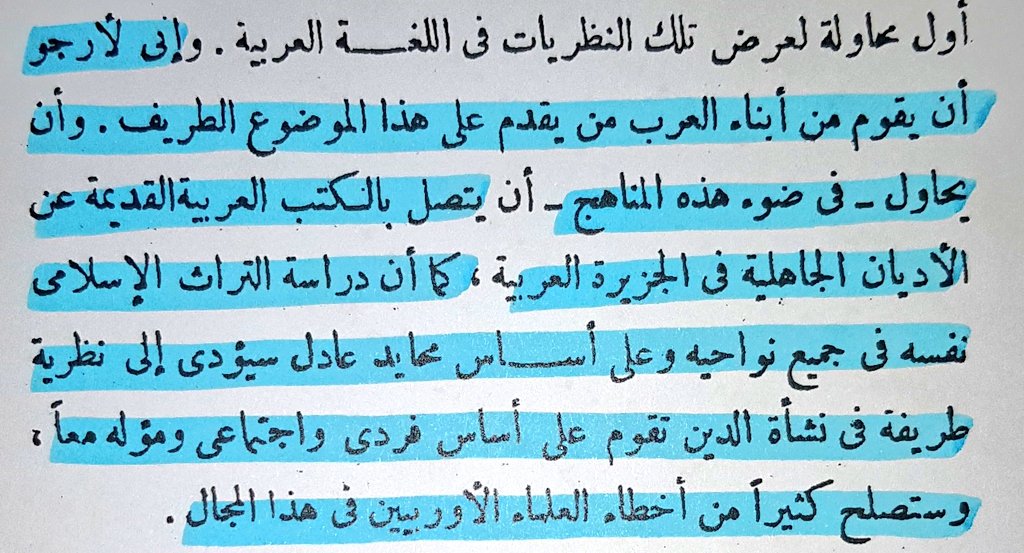 أول محاولة لعرض تلك النظريات فى اللغة العربية . وإنى لأرجو
أن يقوم من أبناء العرب من يقدم على هذا الموضوع الطريف . وأن
يحاول ـ فى ضوء هذه المناهج ـ أن يتصل بالكتب العربية القديمة عن
الأديان الجاهلية فى الجزيرة العربية ، كما أن دراسة التراث الإسلامى
نفسه فى جميع نواحيه وعلى أساس محايد عادل سيؤدى إلى نظرية
طريفة فى نشأة الدين تقوم على أساس فردى واجتماعى ومؤله معاً ،
وستصلح كثيراً من أخطاء العلماء الأوربيين فى هذا المجال .